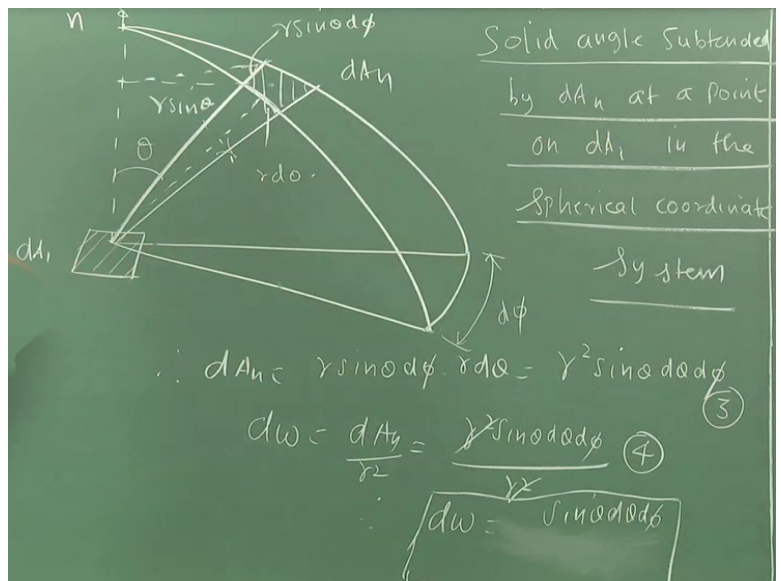 n
rsinθdϕ
dAn
rsinθ
θ
rdθ.
dA1
dϕ
Solid angle Subtended
by dAn at a point
on dA1 in the
Spherical coordinate
System
∴ dAn = rsinθdϕ. rdθ = r²sinθdθdϕ
③
dω = dAn/r2 = r²sinθdθdϕ/r² ④
∴ dω = sinθdθdϕ